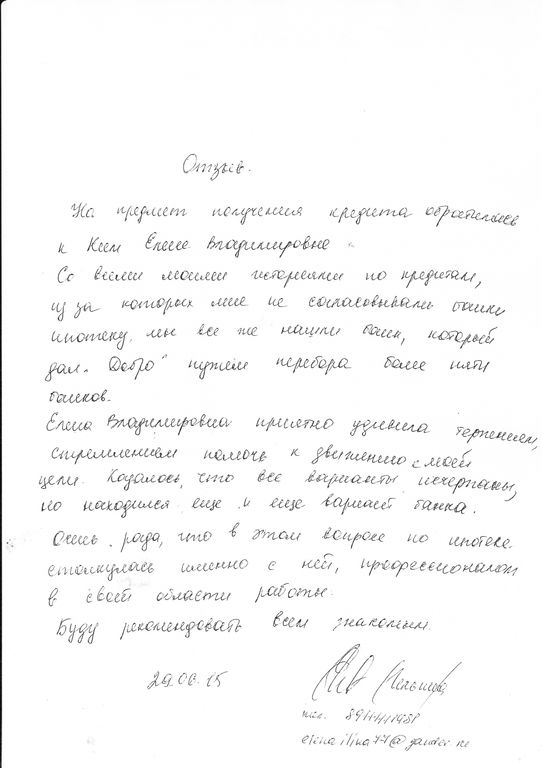 Отзыв.
На предмет получения кредита обратилась
к Ким Елене Владимировне.
Со всеми моими историями по кредитам,
из за которых мне не согласовывали банки
ипотеку, мы все же нашли банк, который
дал „Добро" путем перебора более пяти
банков.
Елена Владимировна приятно удивила терпением,
стремлением помочь к движению с моей
цели. Казалось, что все варианты исчерпаны,
но находился еще и еще вариант банка.
Очень рада, что в этом вопросе по ипотеке
столкнулась именно с ней, профессионалом
в своей области работы.
Буду рекомендовать всем знакомым.
29.06.15
тел.
elenailina77@yandex.ru